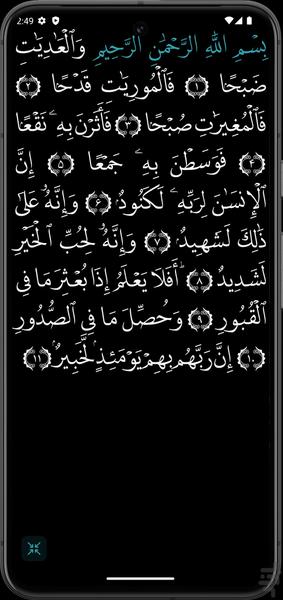 2:49
بِسْمِ اللَّهِ الرَّحْمَٰنِ الرَّحِيمِ وَالْعَادِيَاتِ
ضَبْحًا ﴿١﴾ فَالْمُورِيَاتِ قَدْحًا ﴿٢﴾
فَالْمُغِيرَاتِ صُبْحًا ﴿٣﴾ فَأَثَرْنَ بِهِ نَقْعًا
﴿۴﴾ فَوَسَطْنَ بِهِ جَمْعًا ﴿۵﴾ إِنَّ
الْإِنْسَانَ لِرَبِّهِ لَكَنُودٌ ﴿۶﴾ وَإِنَّهُ عَلَىٰ
ذَٰلِكَ لَشَهِيدٌ ﴿٧﴾ وَإِنَّهُ لِحُبِّ الْخَيْرِ
لَشَدِيدٌ ﴿٨﴾ أَفَلَا يَعْلَمُ إِذَا بُعْثِرَ مَا فِي
الْقُبُورِ ﴿٩﴾ وَحُصِّلَ مَا فِي الصُّدُورِ
﴿١٠﴾ إِنَّ رَبَّهُمْ بِهِمْ يَوْمَئِذٍ لَخَبِيرٌ ﴿١١﴾